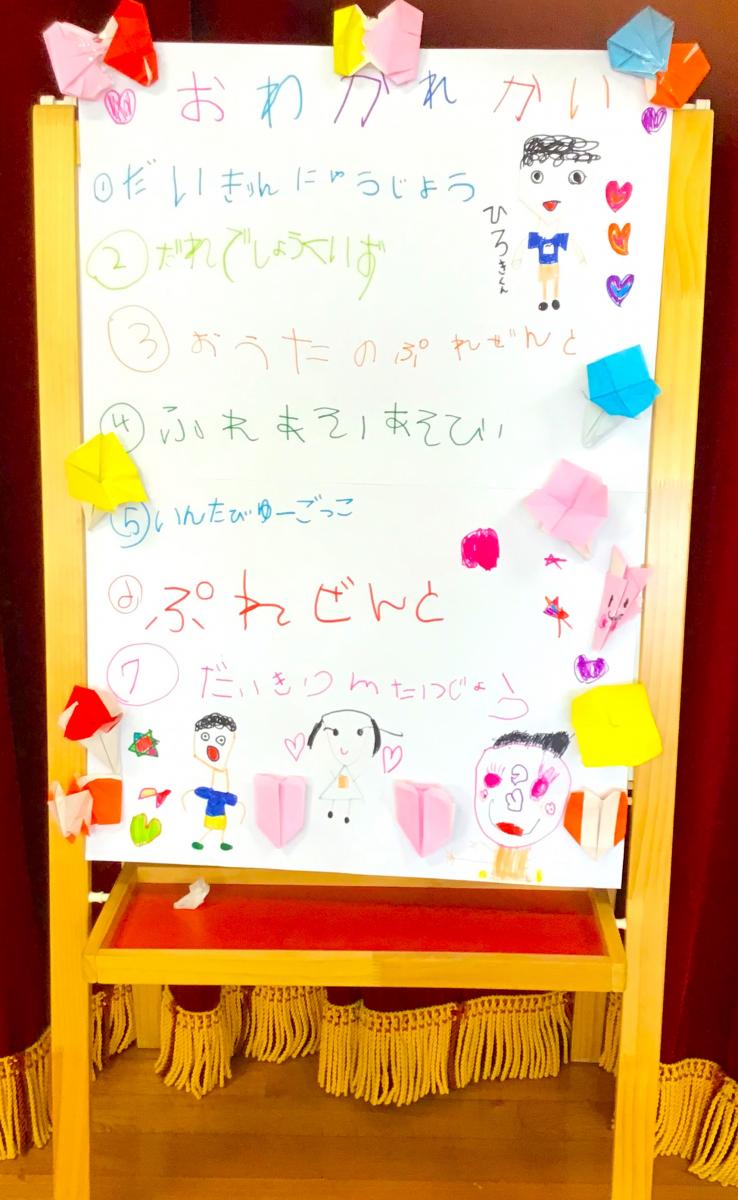 おわかれかい
①だいきりんにゅうじょう
②だれでしょうくいず
③おうたのぷれぜんと
④ふれあそいあそびい
⑤いんたびゅーごっこ
ぷれぜんと
⑦だいきりmたつじょう
ひろきくん